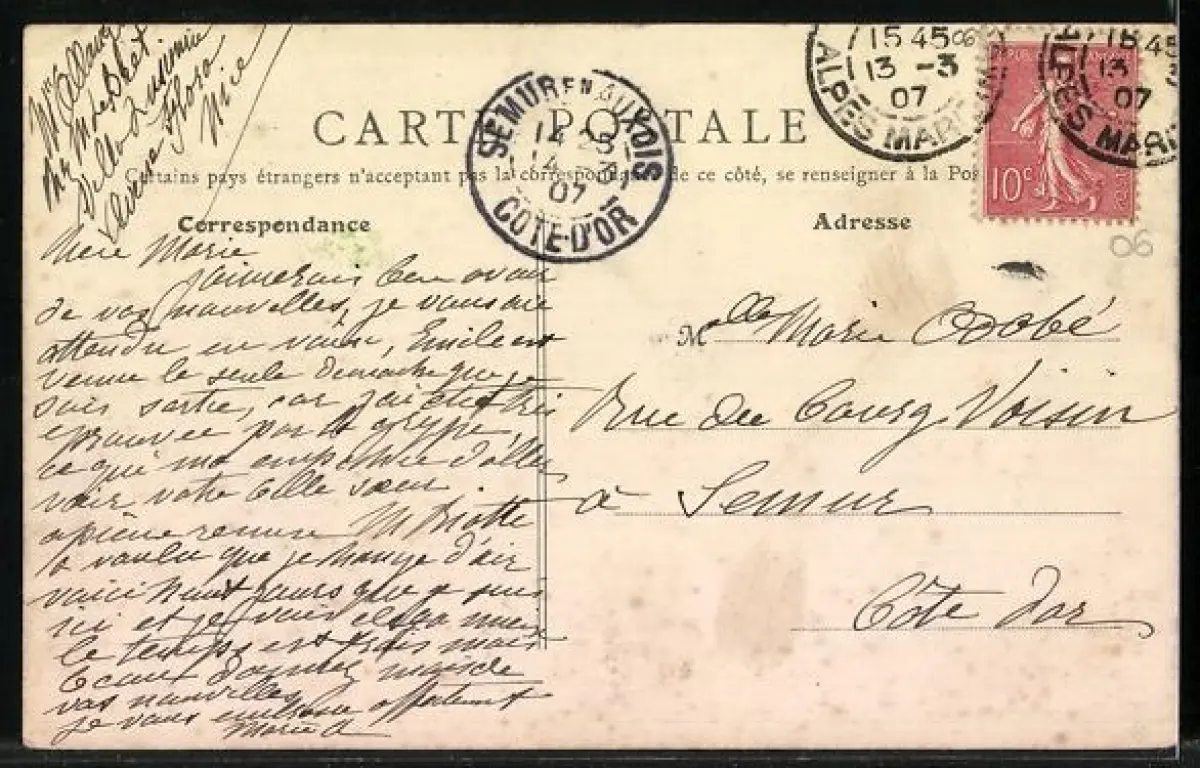 Villa
Nice
CARTE POSTALE
Certains pays étrangers n'acceptant pas la correspondance de ce côté, se renseigner à la Pos
Correspondance
Adresse
SEMUR EN AUXOIS
14 25
14 -3
07
COTE-D'OR
15 45
13 -3
07
ALPES MARIT
15 45
13
07
ALPES MARIT
10c
POSTES
06
Chère Marie
j'aimerais bien avoir
de vos nouvelles, je vous ai
attendu en vain, Emile est
venue le seule dimanche que je
suis sortie, car j'ai été très
éprouvée par la grippe,
ce qui m'a empêchée d'aller
voir votre belle sœur
a peine remise M
a voulu que je change d'air
voici huit jours que je suis
ici et je vais mieux
le temps est frais mais
beau
vos nouvelles
je vous embrasse
Marie
Mlle Marie
Rue du Bourg Voisin
à Semur
Côte d'or